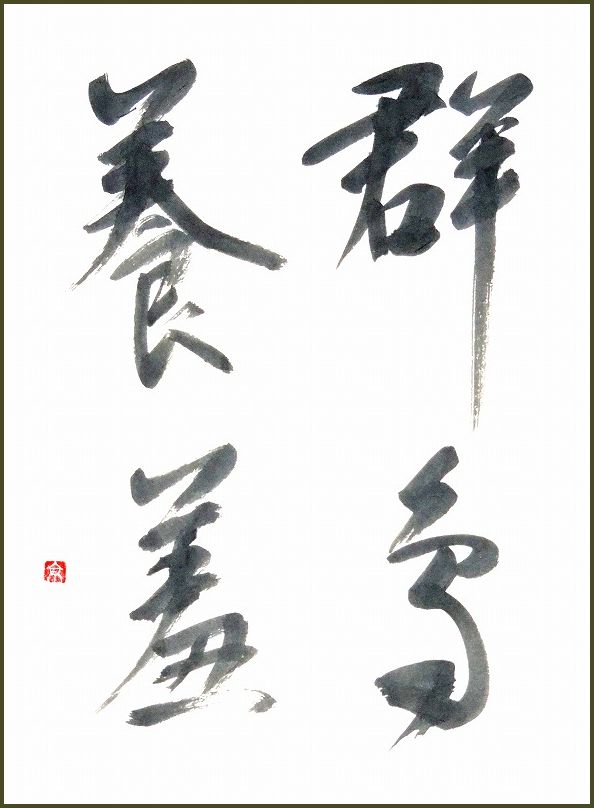 群鳥
養羞